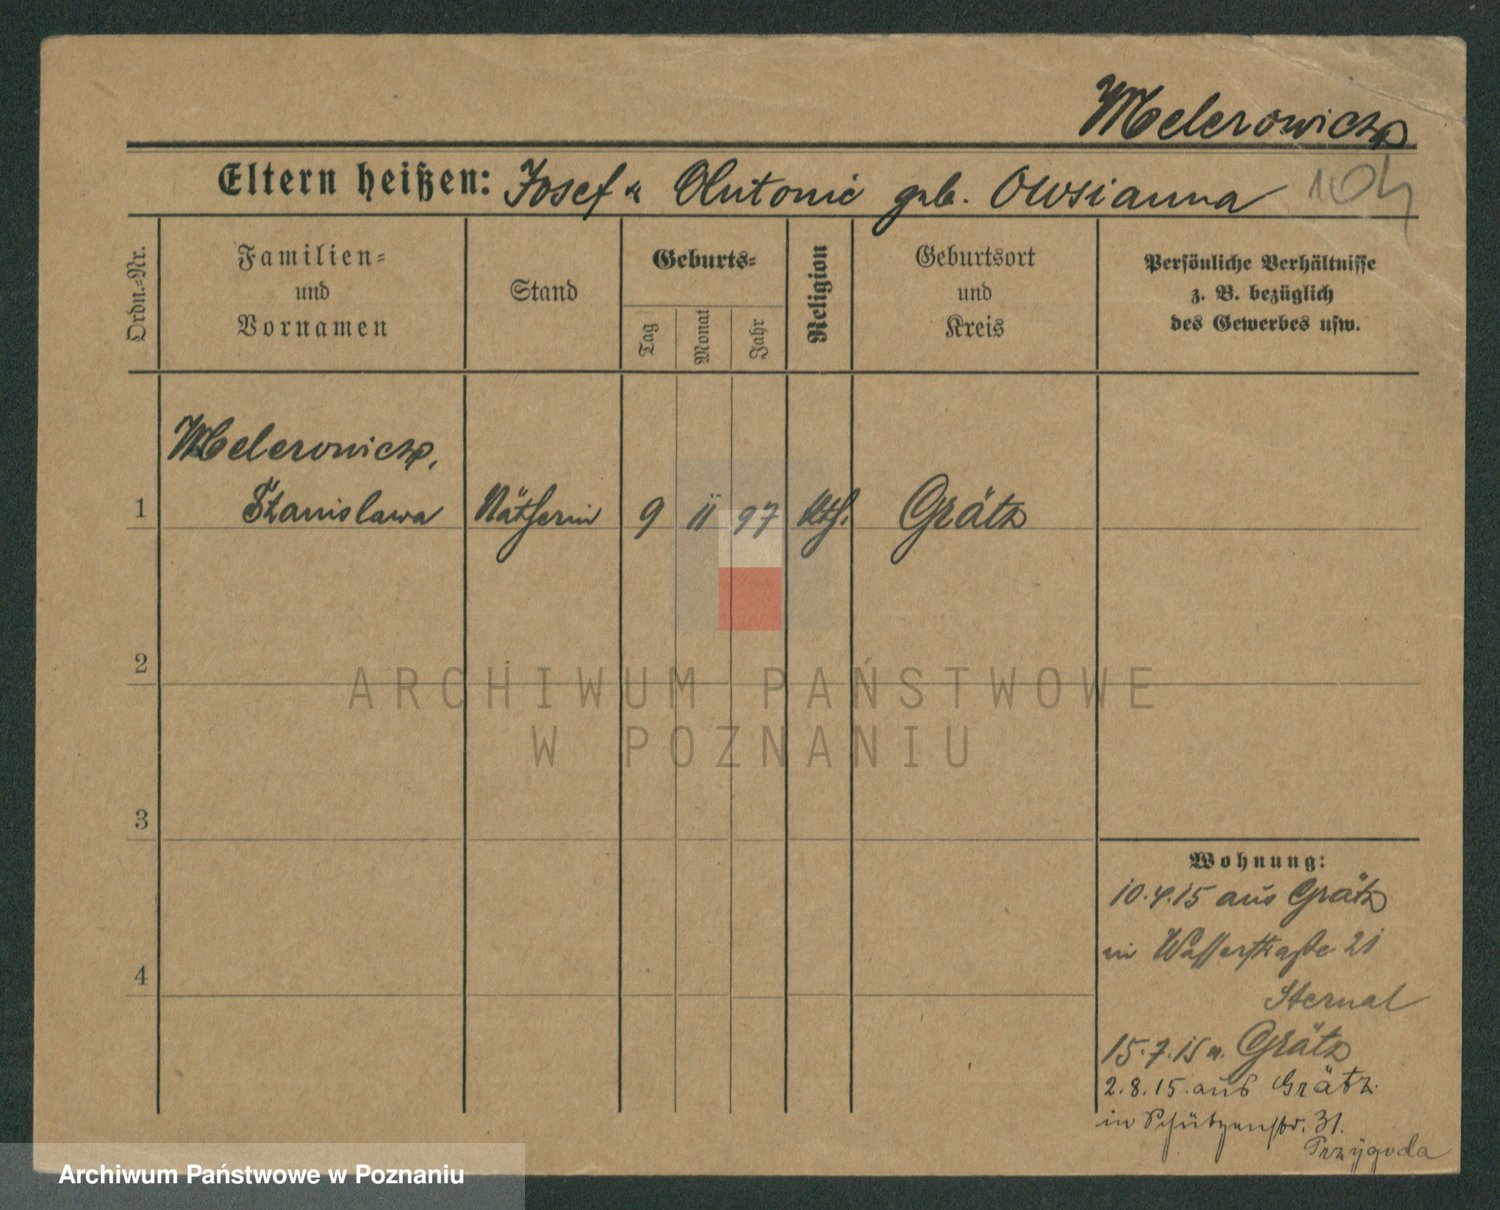 Melerowicz
Eltern heißen: Josef u Antonie geb. Owsianna
104
Ordn.-Nr.
Familien-
und
Vornamen
Stand
Geburts-
Tag
Monat
Jahr
Religion
Geburtsort
und
Kreis
Persönliche Verhältnisse
z. B. bezüglich
des Gewerbes usw.
Melerowicz,
1 Stanislawa Nätherin 9 11 97 kth. Grätz
2
3
4
Wohnung:
10.4.15 aus Grätz
in Wasserstraße 21
Sternal
15.7.15 n. Grätz
2.8.15. aus Grätz
in Schützenstr. 31.
Przygoda
ARCHIWUM PAŃSTWOWE
W POZNANIU
Archiwum Państwowe w Poznaniu